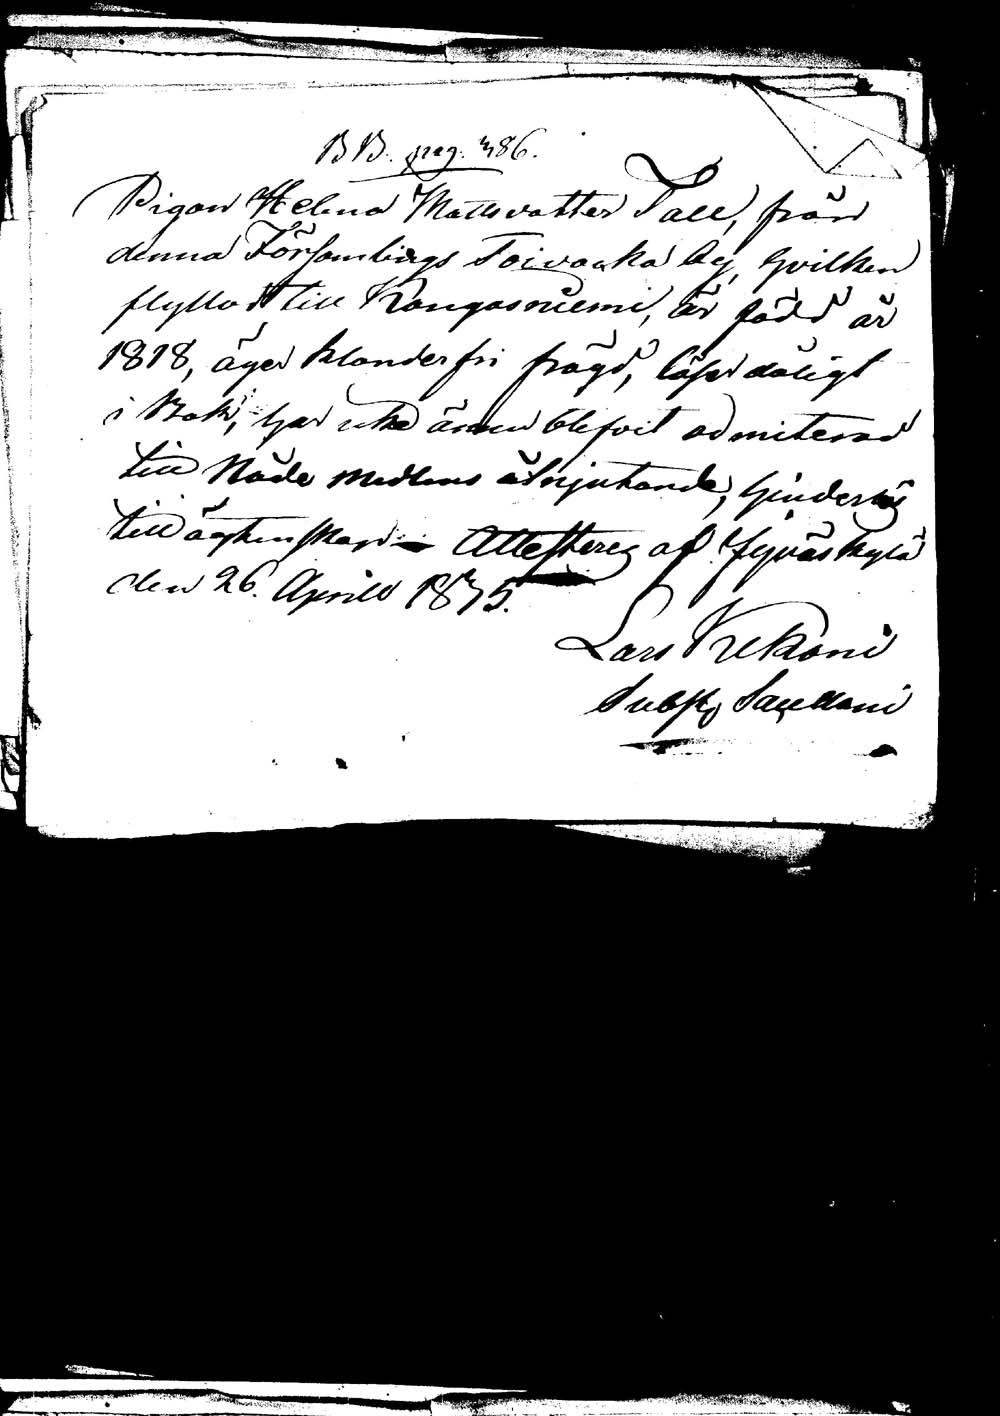 BB. pag. 386.
Pigan Helena Mattsdotter Tall, från
denna Församlings Toivakka by, hvilken
flyttar till Kangasniemi, är född år
1818, äger klanderfri frägd, läser dåligt
i Bok, har icke ännu blefvit admiterad
till Nåde medlens åtnjutande, hinderslös
till ägtenskap – Attesteras af Jyväskylä
den 26. Aprill 1835.
Lars Kekoni
Subst.